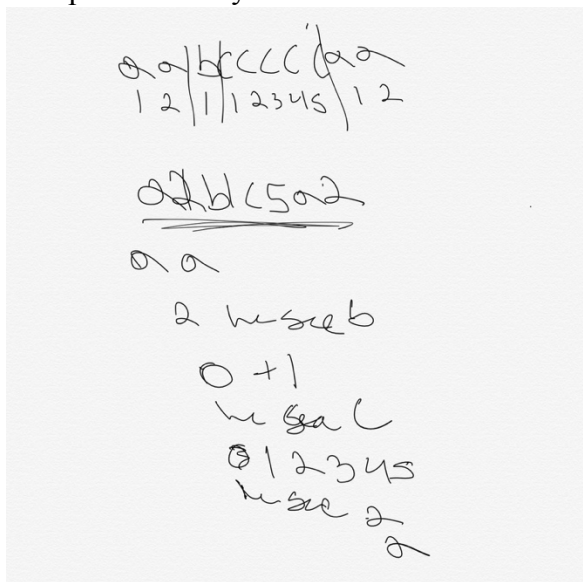 aa|b|ccccc|aa
12|1|12345|12
a2b1c5a2
aa
2 we see b
0 +1
we see c
0 1 2 3 4 5
we see a
2